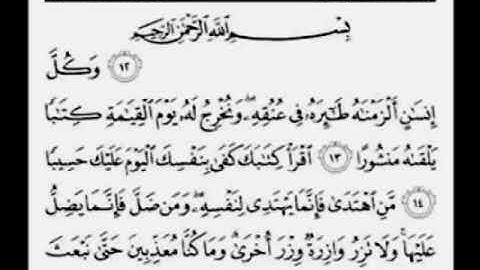 بِسْمِ ٱللَّهِ ٱلرَّحْمَٰنِ ٱلرَّحِيمِ
١٢ وَكُلَّ
إِنسَٰنٍ أَلْزَمْنَٰهُ طَٰٓئِرَهُۥ فِى عُنُقِهِۦ ۖ وَنُخْرِجُ لَهُۥ يَوْمَ ٱلْقِيَٰمَةِ كِتَٰبًا
يَلْقَىٰهُ مَنشُورًا ١٣ ٱقْرَأْ كِتَٰبَكَ كَفَىٰ بِنَفْسِكَ ٱلْيَوْمَ عَلَيْكَ حَسِيبًا
١٤ مَّنِ ٱهْتَدَىٰ فَإِنَّمَا يَهْتَدِى لِنَفْسِهِۦ ۖ وَمَن ضَلَّ فَإِنَّمَا يَضِلُّ
عَلَيْهَا ۚ وَلَا تَزِرُ وَازِرَةٌ وِزْرَ أُخْرَىٰ ۗ وَمَا كُنَّا مُعَذِّبِينَ حَتَّىٰ نَبْعَثَ